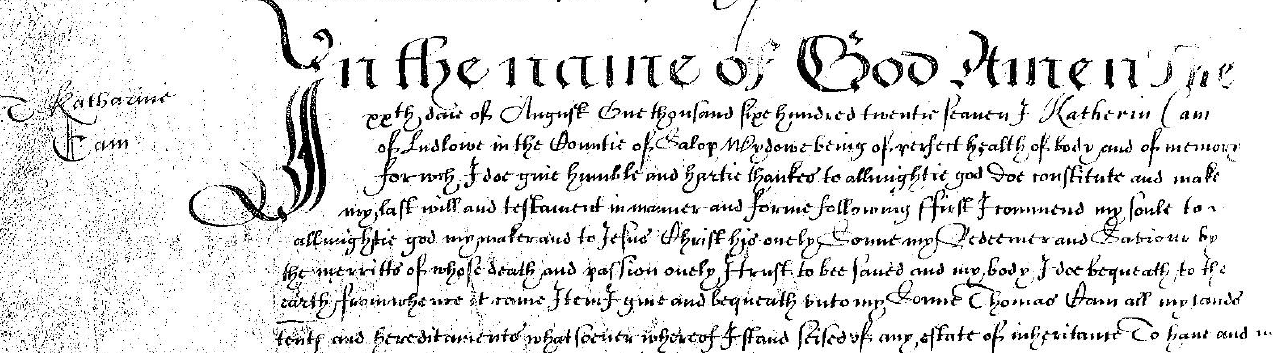 T Katharine
Cam
In the name of God Amen The
xxth daie of August One thousand sixe hundred twentie seaven I Katherin Cam
of Ludlowe in the Countie of Salop Wydowe being of perfect health of body and of memory
for wch I doe give humble and hartie thankes to allmightie god doe constitute and make
my last will and testament in manner and forme following ffirst I commend my soule to
allmightie god my maker and to Jesus Christ his onely Sonne my Redeemer and Saviour by
the merritts of whose death and passion onely I trust to bee saved and my body I doe bequeath to the
earth from whence it came Item I give and bequeath unto my Sonne Thomas Cam all my lands
tents and hereditaments whatsoever whereof I stand seised of any estate of inheritance To have and